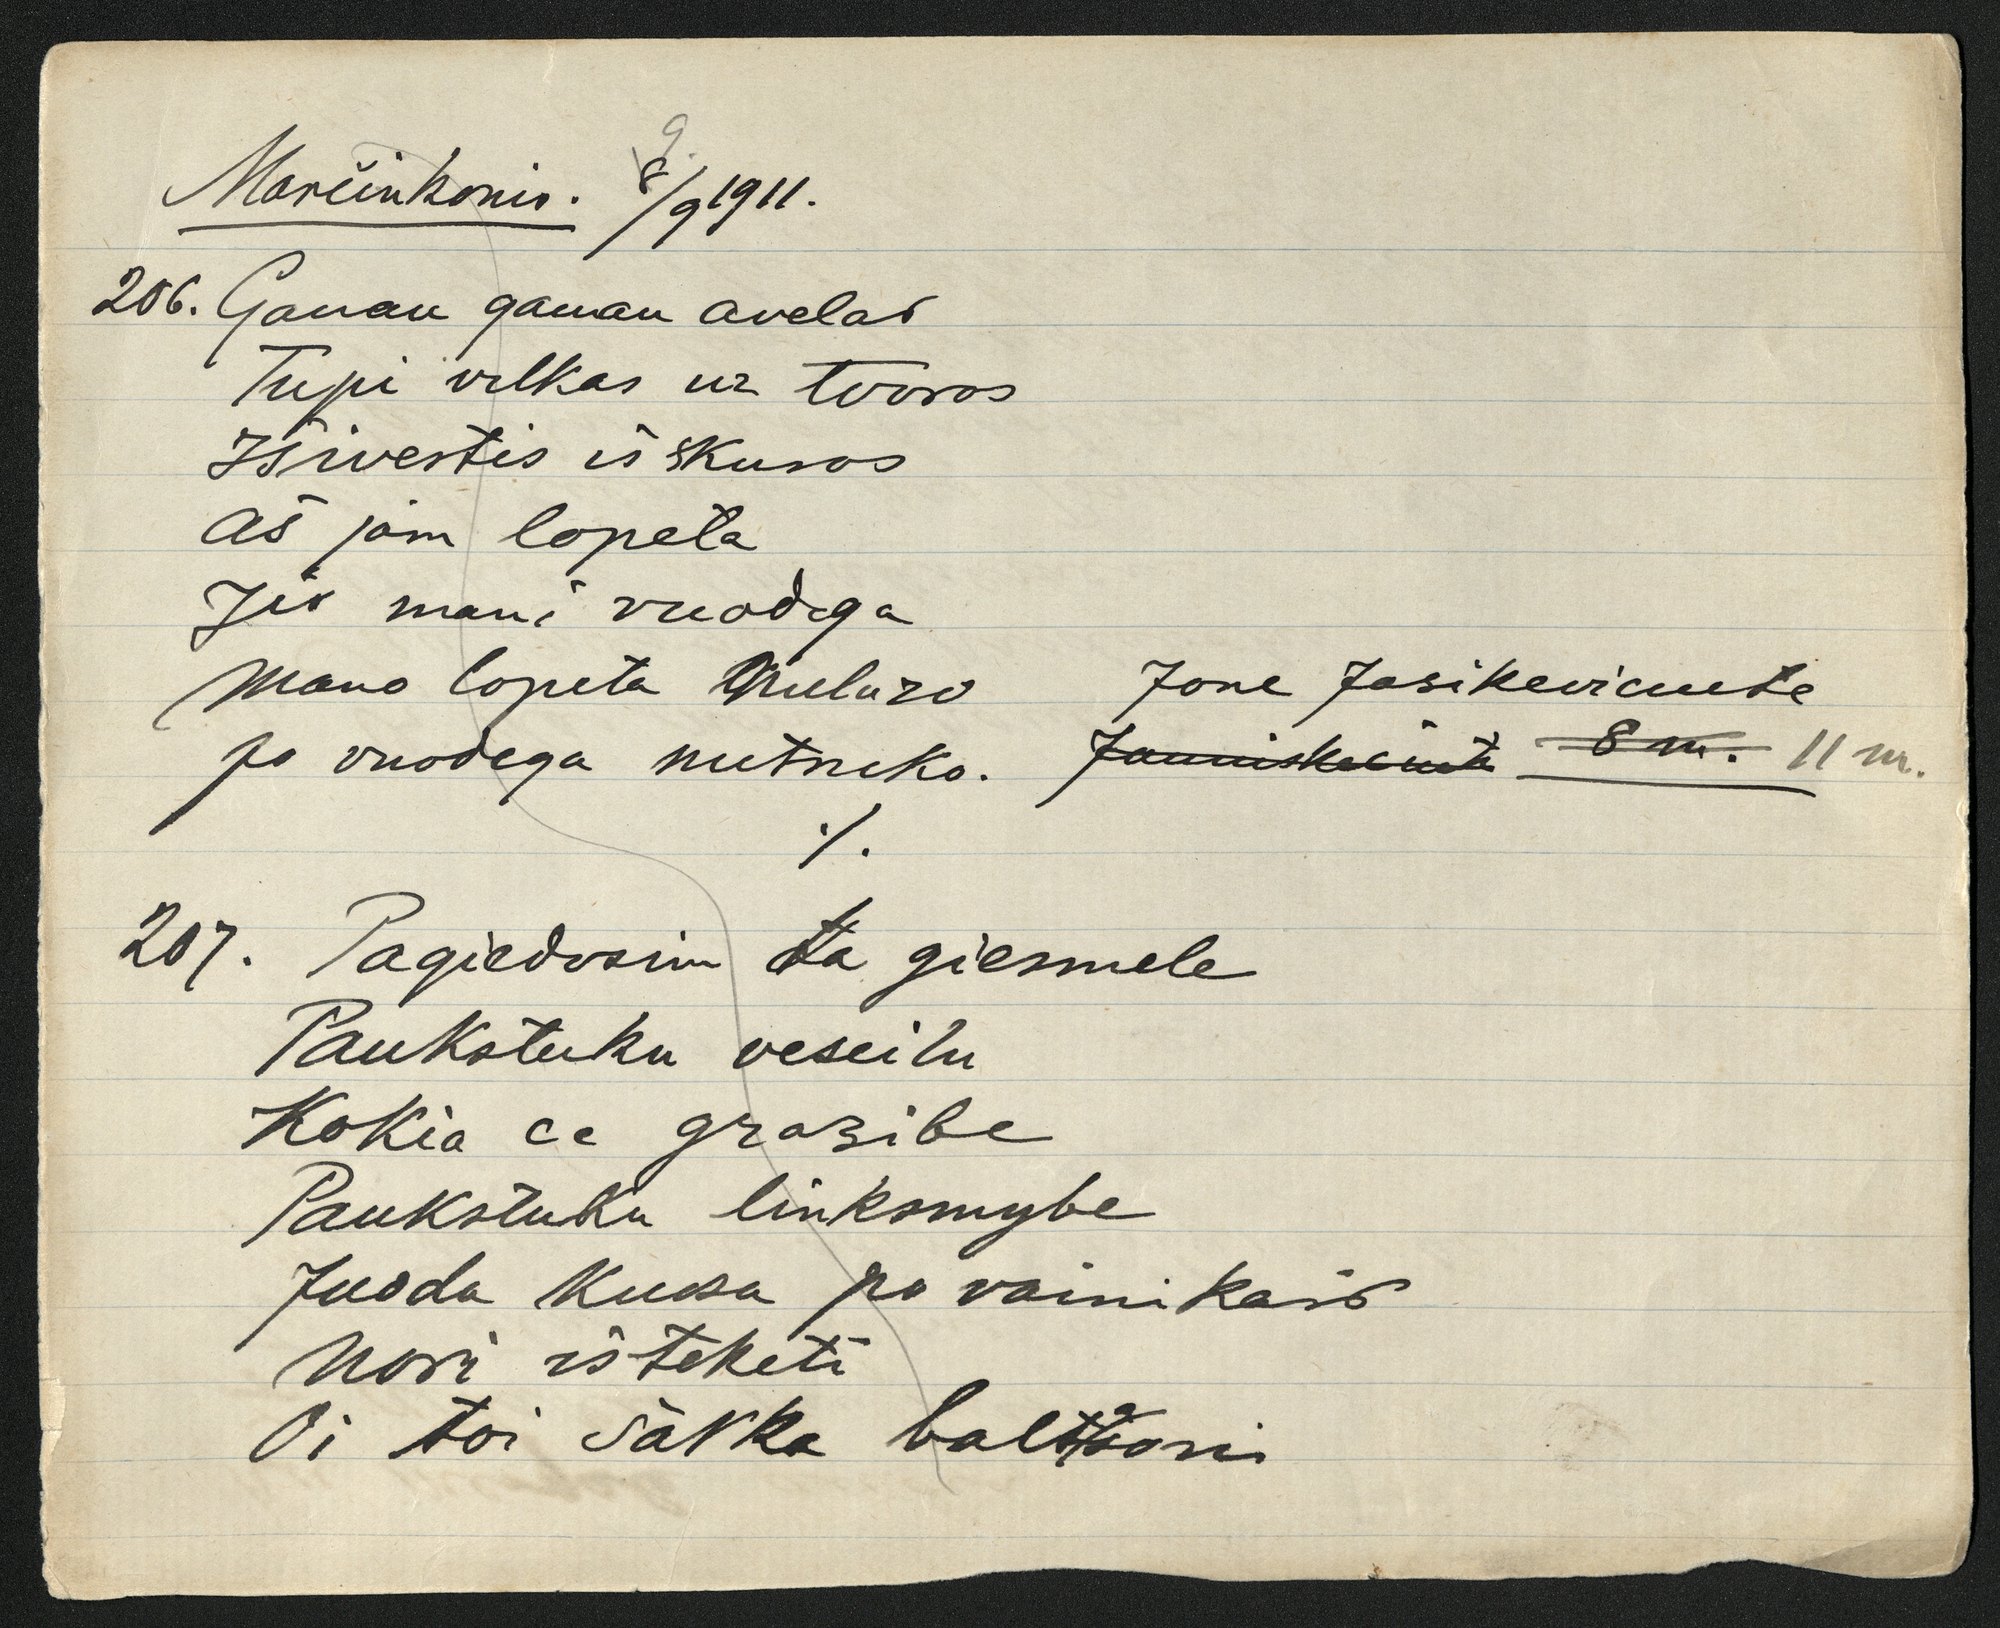 Marčinkonis. 8/9 1911.
9.
206. Ganau ganau avelas
Tupi vilkas uz tvoros
Išivertis iš skuros
Aš jam lopeta
Jis mani vuodega
Mano lopeta nuluzo
Jo vuodega nutruko.
Jone Jasikeviciute
8 m. 11 m.
./.
207. Pagiedosim ta giesmele
Paukstuku veseilu
Kokia ce grazibe
Paukstuku linksmybe
Juoda kuosa po vainikais
Nori išteketi
Oi toi šarka baltaoni